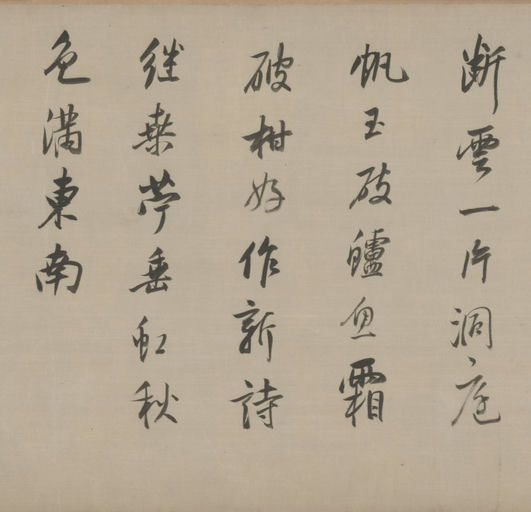 断雲一片洞庭
帆玉破鱸魚霜
破柑好作新詩
继桒苧垂虹秋
色滿東南